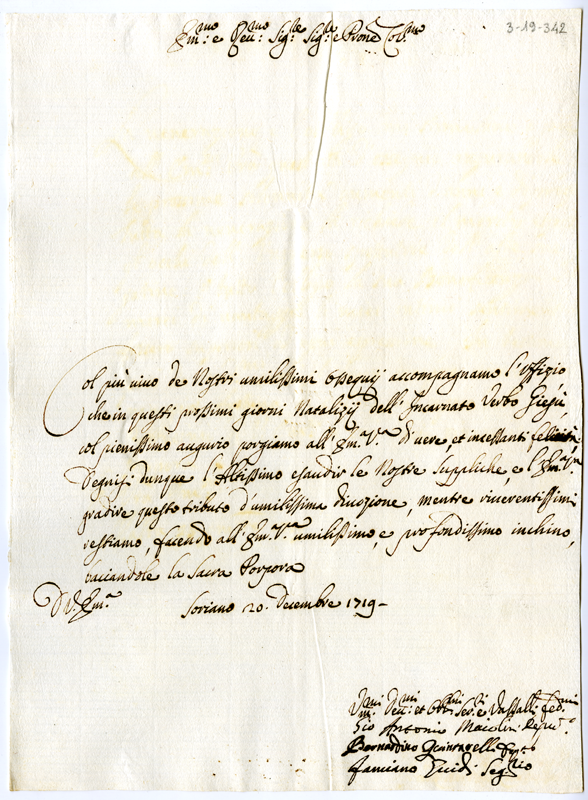 3-19-342
Em:mo e Reu:mo Sig:re Sig:re e Prone Col:mo
Col più uiuo de Nostri umilissimi ossequij accompagnamo l'Offizio
che in questi prossimi giorni Natalizij dell'Incarnato Verbo Giesù
col pienissimo augurio porgiamo all'Em:a V:a di uere, et incessanti felicità
Degnisi dunque l'Altissimo esaudir le Nostre suppliche, e l'Em:a V:a
gradire questo tributo d'umilissima diuozione, mentre riuerentissimi
restiamo, facendo all'Em:a V:a umilissimo, e profondissimo inchino,
bacciandole la Sacra Porpora
D V. Em:a Soriano 20. Decembre 1719-
Vmi:mi Deu:mi et Obb:mi Ser:ri e Vassalli fed:mi
Gio Antonio
Bernardino
Fanciano Guidi Seg:rio